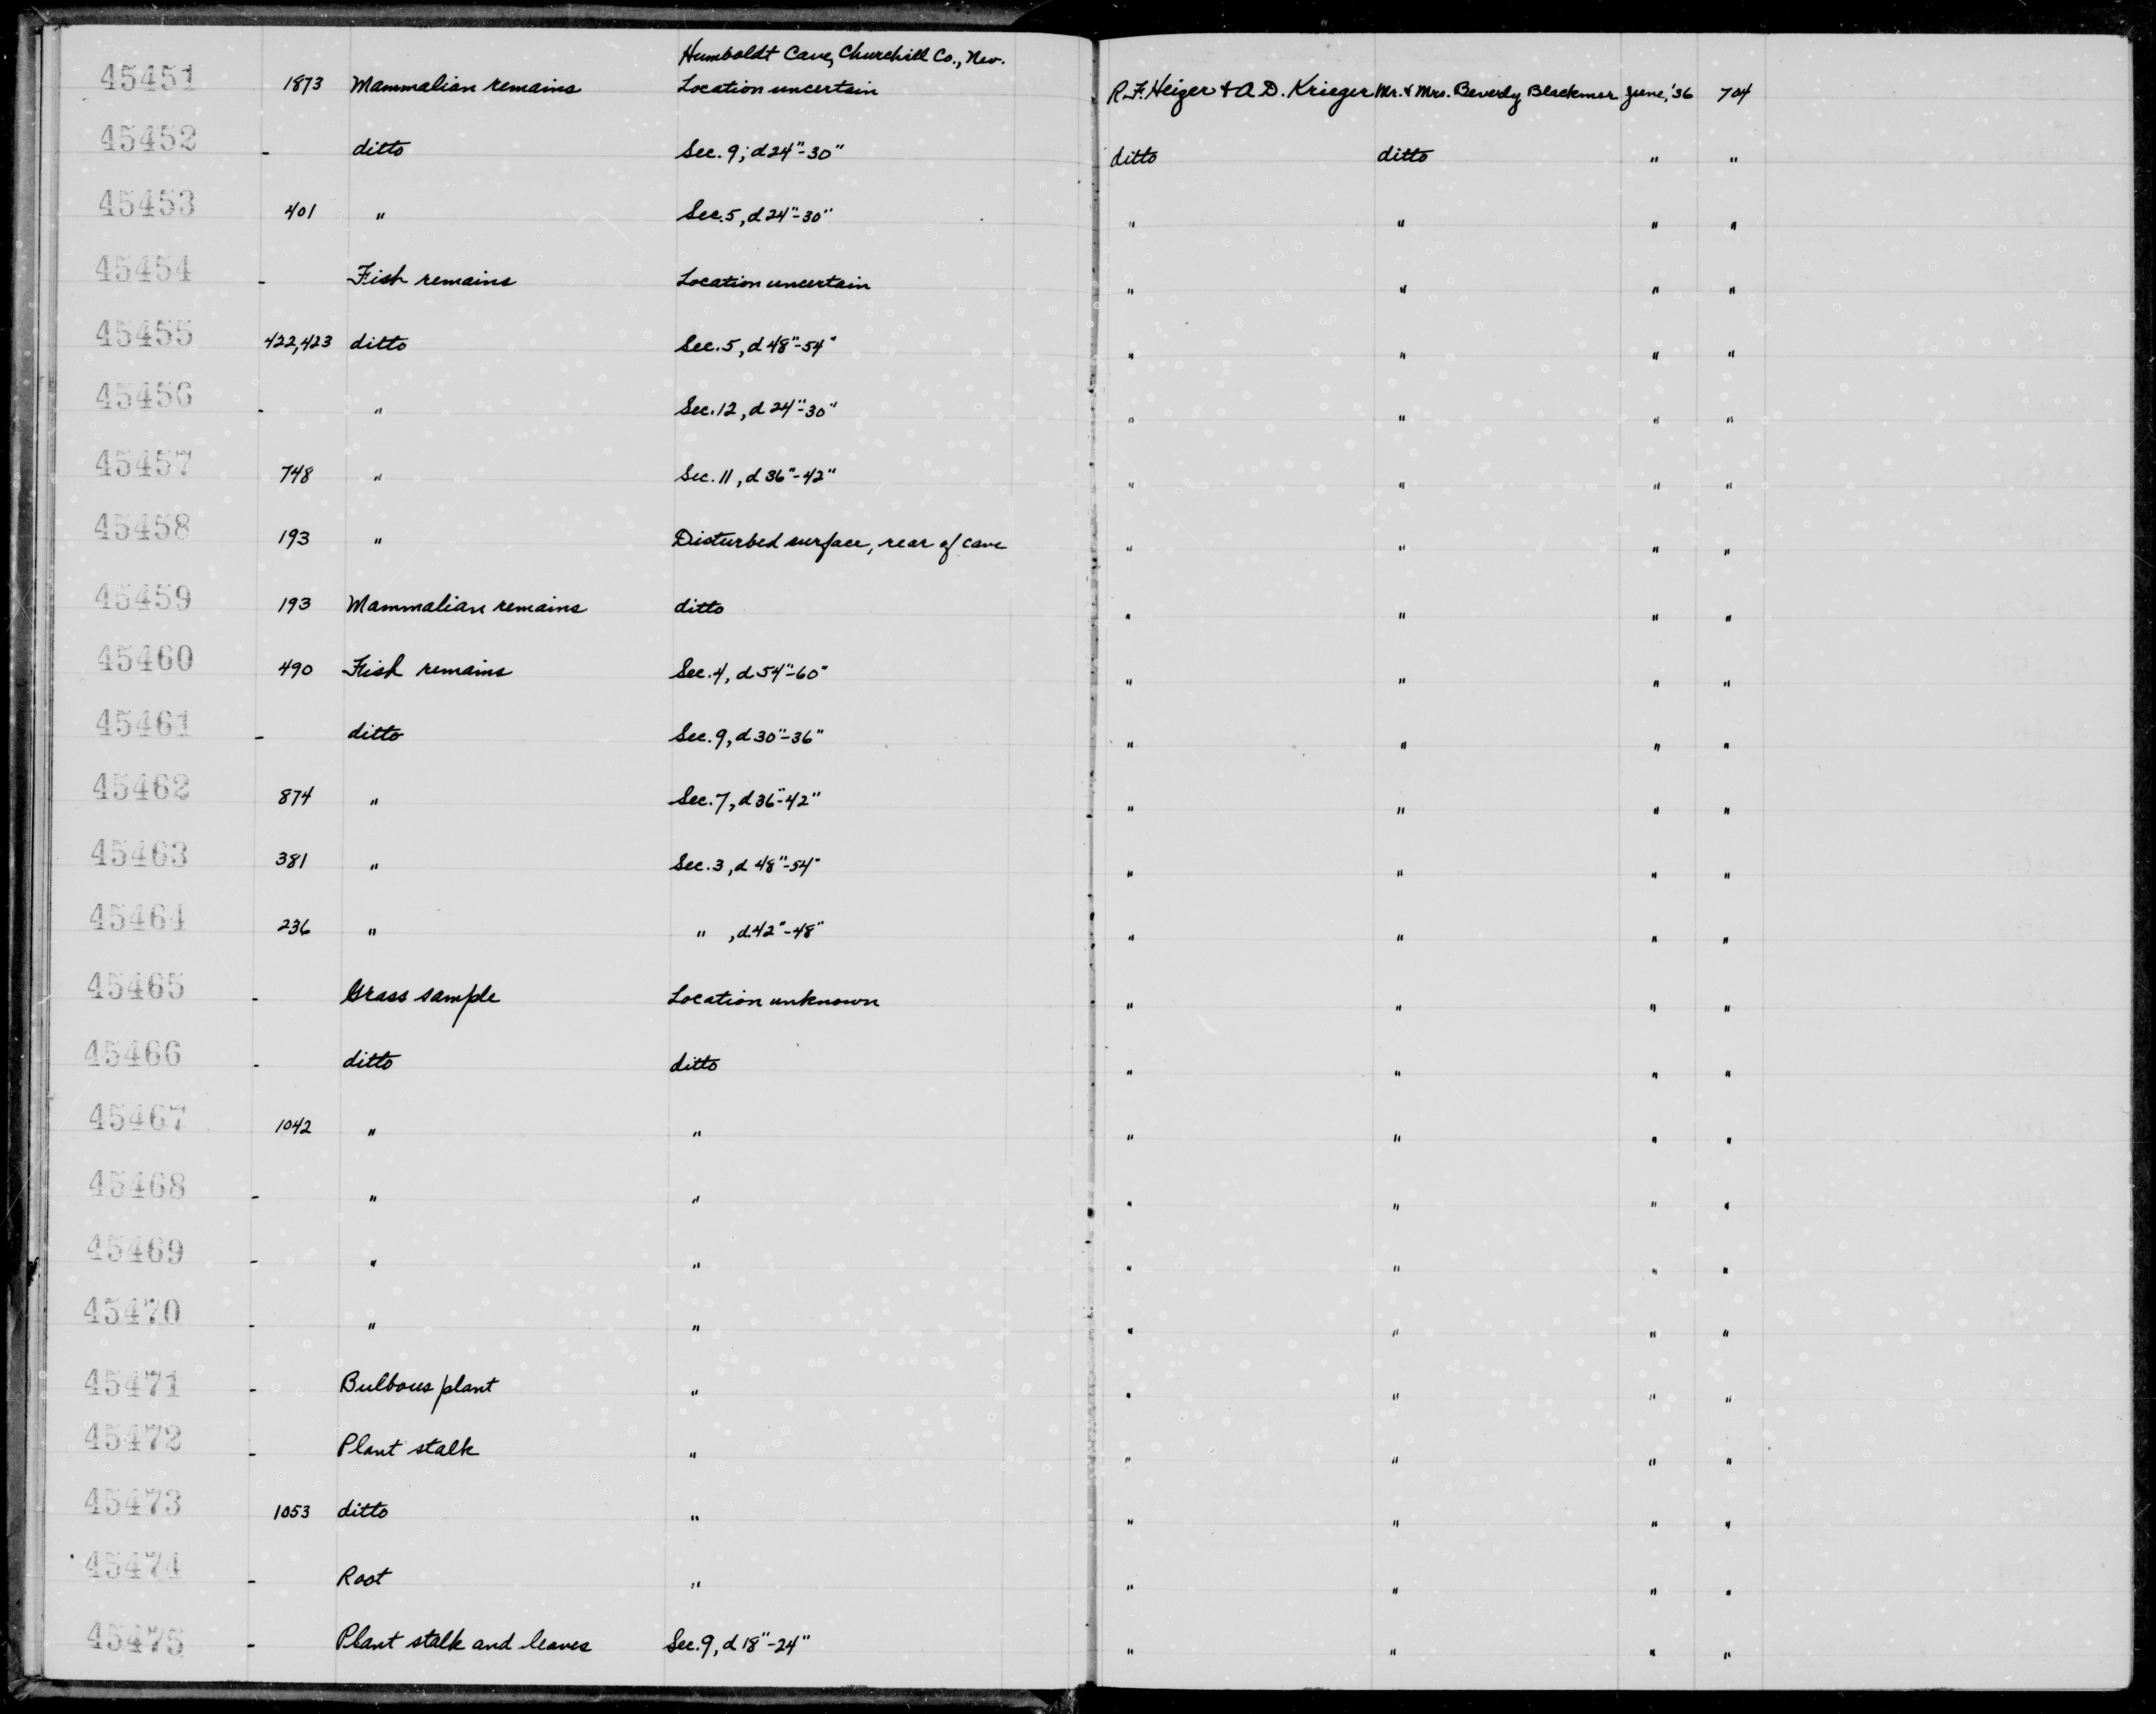 Humboldt Cave, Churchill Co., Nev.
45451 1873 Mammalian remains Location uncertain R.F. Heizer & A.D. Krieger Mr. & Mrs. Beverly Blackmer June, '36 704
45452 - ditto Sec. 9; d 24"-30" ditto ditto " "
45453 401 " Sec. 5, d 24"-30" " " " "
45454 - Fish remains Location uncertain " " " "
45455 422,423 ditto Sec. 5, d 48"-54" " " " "
45456 - " Sec. 12, d 24"-30" " " " "
45457 748 " Sec. 11, d 36"-42" " " " "
45458 193 " Disturbed surface, rear of cave " " " "
45459 193 Mammalian remains ditto " " " "
45460 490 Fish remains Sec. 4, d 54"-60" " " " "
45461 - ditto Sec. 9, d 30"-36" " " " "
45462 874 " Sec. 7, d 36"-42" " " " "
45463 381 " Sec. 3, d 48"-54" " " " "
45464 236 " " , d. 42"-48" " " " "
45465 - Grass sample Location unknown " " " "
45466 - ditto ditto " " " "
45467 1042 " " " " " "
45468 - " " " " " "
45469 - " " " " " "
45470 - " " " " " "
45471 - Bulbous plant " " " " "
45472 - Plant stalk " " " " "
45473 1053 ditto " " " " "
45474 - Root " " " " "
45475 - Plant stalk and leaves Sec. 9, d 18"-24" " " " "